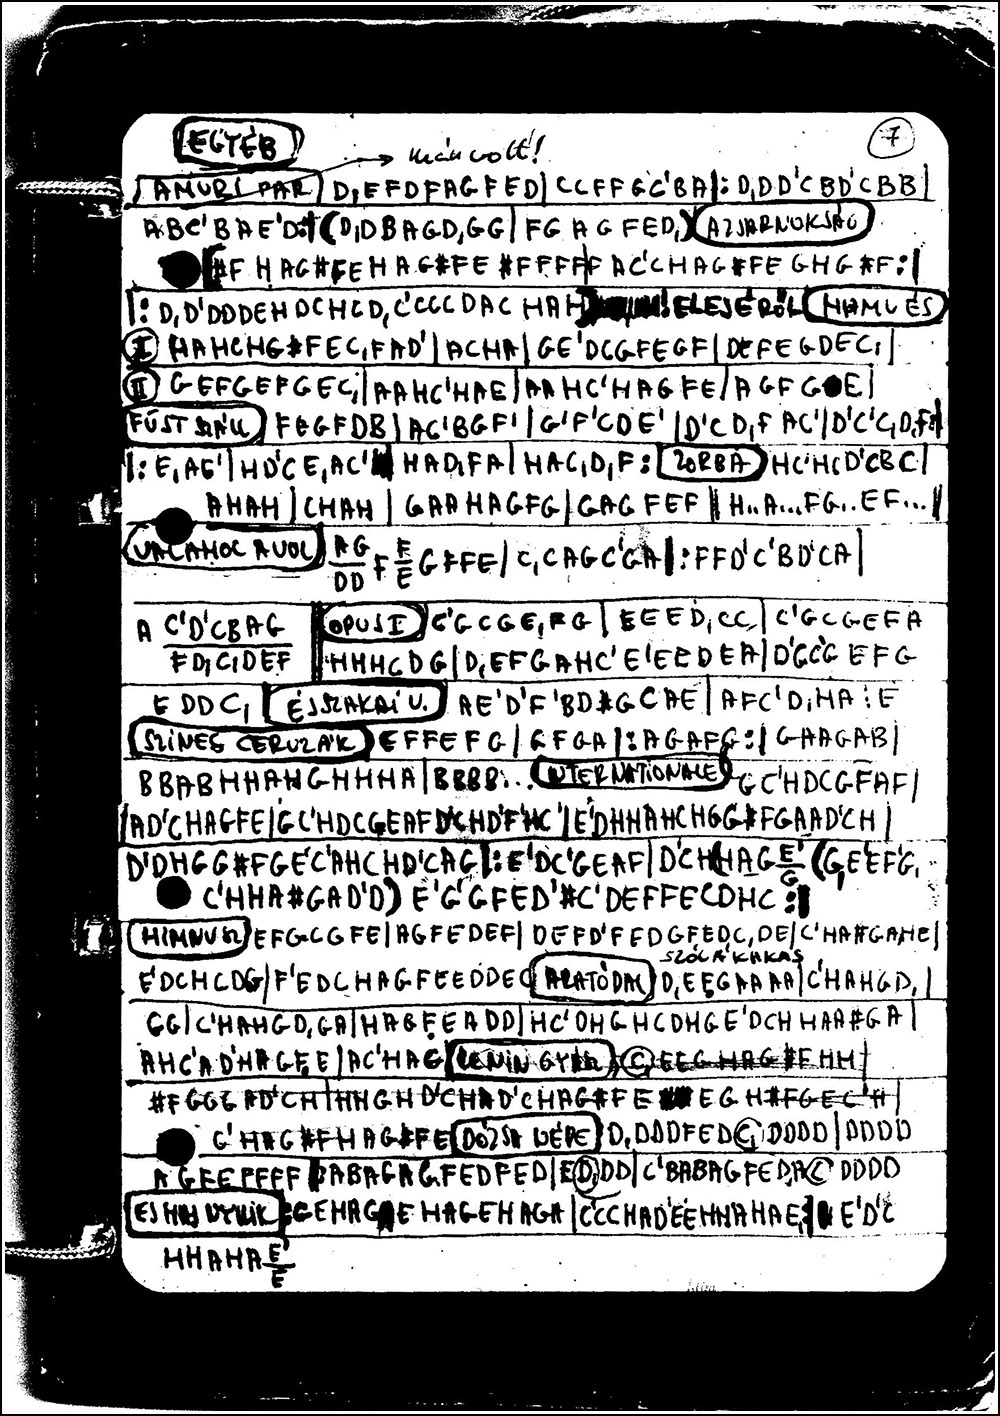 EGYÉB → már volt! 7
AMURI PAR D,EFDFAGFED| CCFFGC'BA|: D,DD'CBD'CBB|
ABC'BAE'D:| (D,DBAGD,GG| FGAGFED,)
#FHAG#FEHAG#FE #FFFFF AC'CHAG#FEGHG#F:|
|: D,D'DDDEHDCHCD,C'CCCDACHAH ELEJÉRŐL HAMU ÉS
I HAHCHG#FEC,FAD'|ACHA|GE'DCGFEGF|DEFEGDEC,|
II GEFGEFGEC,|AAHC'HAE|AAHC'HAGFE/AGFG E|
FÜST FEGFDB|AC'BGF'|G'F'CDE'|D'CD,FAC'|D'C'C,D,F
|: E,AE'|HD'CE,AC' HAD,FA|HAC,D,F: ZORBA HC'HCD'CBC|
AHAH|CHAH|GAAHAGFG|GAGFEF||H..A...FG..EF...|
VALAHOL AG/DD F F/E G#FE|C,CAGC'GA|:FFD'C'BD'CA|
A C'D'CBAG/FD,C,DEF OPUS I C'GCGE,FG|EEED,CC|C'GCGEFA
HHHCDG|D,EFGAHC'E'EEDEA|D'GC'G EFG
EDDC, AE'D'F'BD#GCAE|AFC'D,HA:E
SZINES CERUZÁK EFFEFG|GFGA|:AGAFG:|GAAGAB|
BBABHHAHGHHHA|BBBB... INTERNATIONALE GC'HDCGFAF|
|AD'CHAGFE|GC'HDCGEAFD'CHD'F'HC'|E'DHHAHCHGG#FGAAD'CH|
D'DHGG#FGE'C'AHCHD'CAG|:E'DC'GEAF|D'CH HAG E'/G (G,E'EF'G,
C'HHA#GAD'D) E'G'GFED'#C'DEFFECDHC:|
HIMNUSZ EFGCGFE|AGFEDEF|DEFD'FEDGFEDC,DE|C'HA#GAHE|
SZÓL A KAKAS
E'DCHCDG|F'EDCHAGFEEDDEC ARATÓDAL D,EEGAAAA|C'HAHGD,|
GG|C'HAHGD,GA|HAGFEADD|HC'DHGHCDHGE'DCHHAA#GA|
AHC'AD'HAGFE|AC'HAG LENIN C,EEGHAG#FHH|
#FGGGAD'CH|HHGHD'CHAD'CHAG#FE EGH#FGEC'H|
C'HAG#FHAG#FE DÓZSA D,DDDFEDC,DDDD|DDDD
AGFEFFFF DABAGAGFEDFED|ED,DD|C'BABAGFEDAC DDDD
GEHAG E HAGEHAGA|C'CCHAD'EEHHAHAE,:| E'D'C
HHAHA E'/E